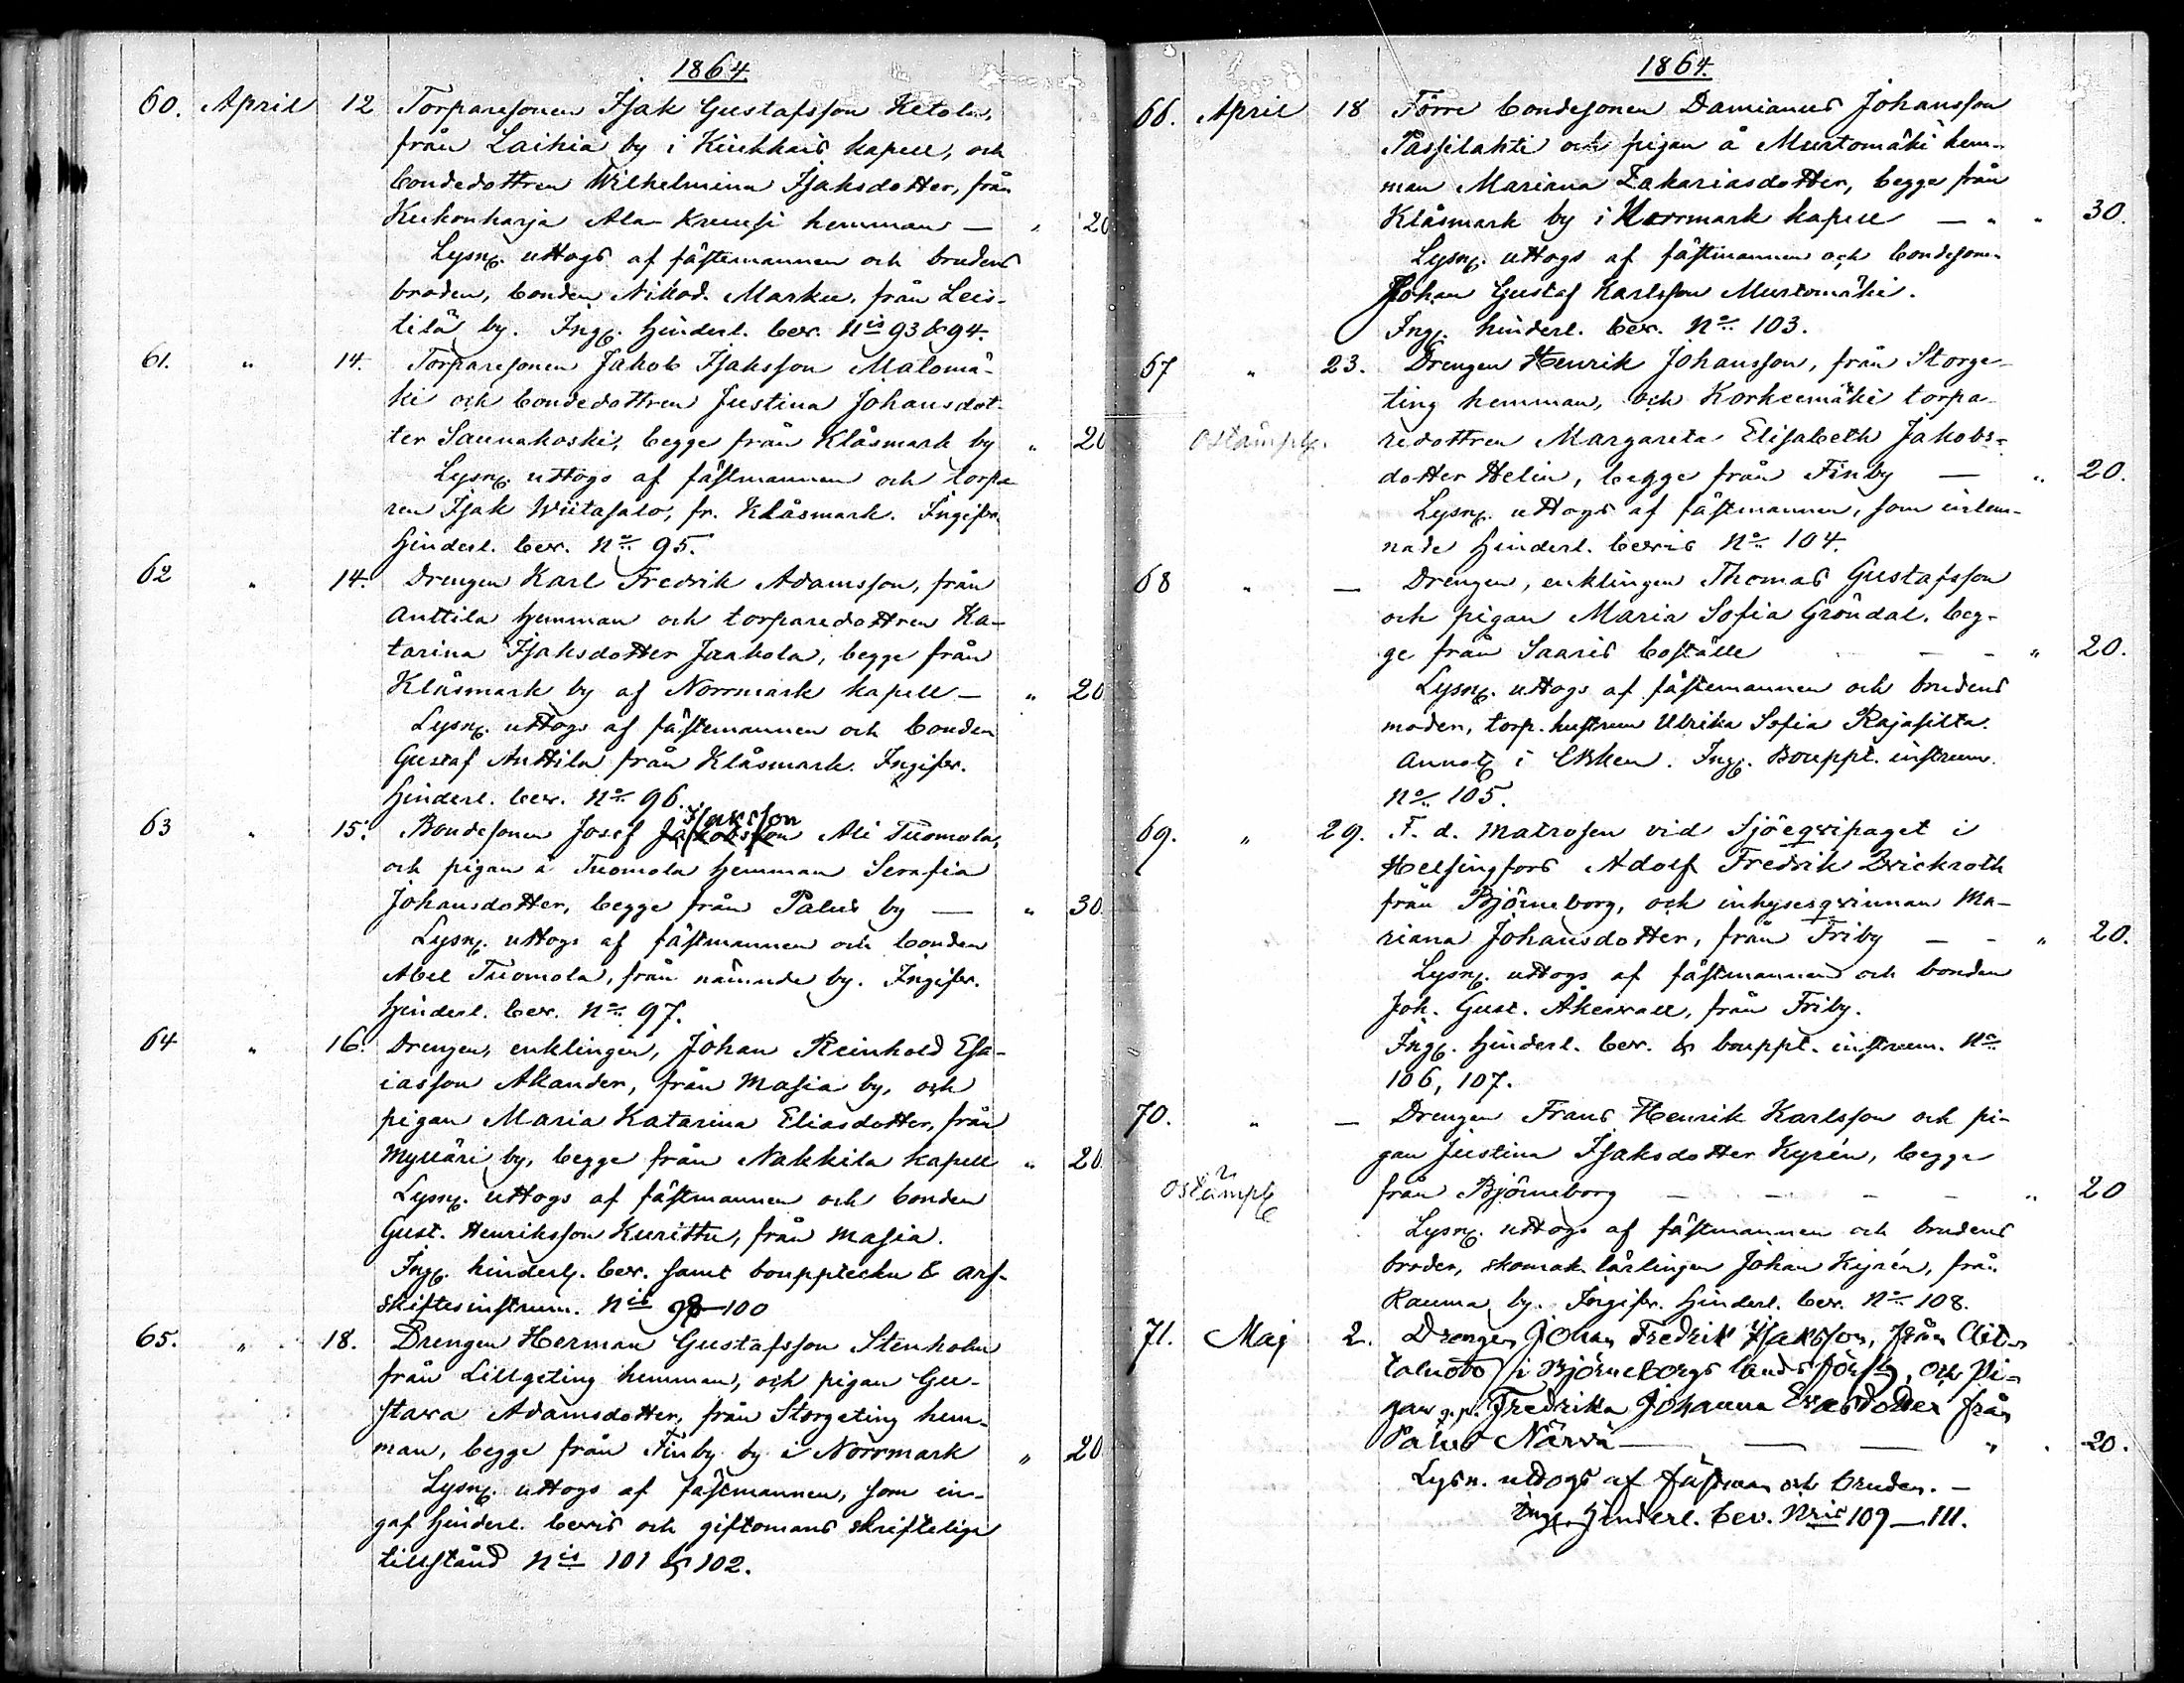 1864.
60. April 12 Torparesonen Isak Gustafsson Ketola,
från Laihia by i Kiukkais kapell, och
bondedottren Wilhelmina Isaksdotter, från
Kukonharja Ala-Kreusi hemman — " 20
Lysng. uttogs af fästemannen och brudens
broder, bonden Nikod. Marku, från Leis-
tilä by. Ingg. hinderl. bev. Nis 93 & 94.
61. " 14. Torparesonen Jakob Isaksson Matomä-
ki och bondedottren Justina Johansdot-
ter Saunakoski, begge från Klåsmark by " 20
Lysng. uttogs af fästmannen och torpa-
ren Isak Wiitasalo, fr. Klåsmark. Ingifv.
hinderl. bev. No 95.
62 " 14. Drengen Karl Fredrik Adamsson, från
Anttila hemman och torparedottren Ka-
tarina Isaksdotter Jaakola, begge från
Klåsmark by af Norrmark kapell — " 20
Lysng. uttogs af fästemannen och bonden
Gustaf Anttila från Klåsmark. Ingifv.
hinderl. bev. No 96.
Isaksson
63 " 15. Bondesonen Josef Jakobsson Ali Tuomola,
och pigan å Tuomola hemman Serafia
Johansdotter, begge från Palus by — " 30
Lysng. uttogs af fästmannen och bonden
Abel Tuomola, från nämnde by. Ingifv.
hinderl. bev. No 97.
64 " 16. Drengen, enklingen, Johan Reinhold Esa-
iasson Akander, från Masia by, och
pigan Maria Katarina Eliasdotter, från
Mylläri by, begge från Nakkila kapell " 20
Lysng. uttogs af fästmannen och bonden
Gust. Henriksson Kurittu, från Masia.
Ingg. hinderlg. bev. samt bouppteckn & arf-
skiftesinstrum. Nis 98—100
65. " 18. Drengen Herman Gustafsson Stenholm
från Lillgeting hemman, och pigan Gu-
stava Adamsdotter, från Storgeting hem-
man, begge från Finby by i Norrmark " 20
Lysng. uttogs af fästmannen, som in-
gaf hinderl. bevis och giftomans skriftelige
tillstånd Nis 101 & 102.
1864.
66. April 18 Förre bondesonen Damianus Johansson
Passilahti och pigan å Murtomäki hem-
man Mariana Zakariasdotter, begge från
Klåsmark by i Norrmark kapell — " " 30.
Lysng. uttogs af fästmannen och bondeson.
Johan Gustaf Karlsson Murtomäki.
Ingg. hinderl. bev. No 103.
67 " 23. Drengen Henrik Johansson, från Storge-
ting hemman, och Korkeemäki torpa-
ostämpl. redottren Margareta Elisabeth Jakobs-
dotter Helin, begge från Finby — " 20.
Lysng. uttogs af fästmannen, som inlem-
nade hinderl. bevis No 104.
68 " — Drengen, enklingen Thomas Gustafsson
och pigan Maria Sofia Gröndal, beg-
ge från Saaris boställe - - - " 20.
Lysng. uttogs af fästemannen och brudens
moder, torp. hustrun Ulrika Sofia Rajasilta.
Ingg. Bouppt. instrum.
No 105.
69. " 29. F. d. Matrosen vid Sjöeqvipaget i
Helsingfors Adolf Fredrik Brickroth
från Björneborg, och inhysesqvinnan Ma-
riana Johansdotter, från Friby - - " 20.
Lysng. uttogs af fästmannen och bonden
Joh. Gust. Åkervall, från Friby.
Ingg. hinderl. bev. & bouppt. instrum. No
106, 107.
70. " — Drengen Frans Henrik Karlsson och pi-
gan Justina Isaksdotter Kyrén, begge
ostämpl från Björneborg - - - - " 20
Lysng. uttogs af fästmannen och brudens
broder, skomak. lärlingen Johan Kyrén, från
Rauma by. Ingifv. hinderl. bev. No 108.
71. Maj 2. Drengen Johan Fredrik Isaksson, från
i Björneborgs landsförslg, och Pi-
gan Fredrika Johanna Eriksdotter från
Palus Närvä — — — " . 20.
Lysn. uttogs af fästman och bruden. —
Ingg. hinderl. bev. Nris 109—111.